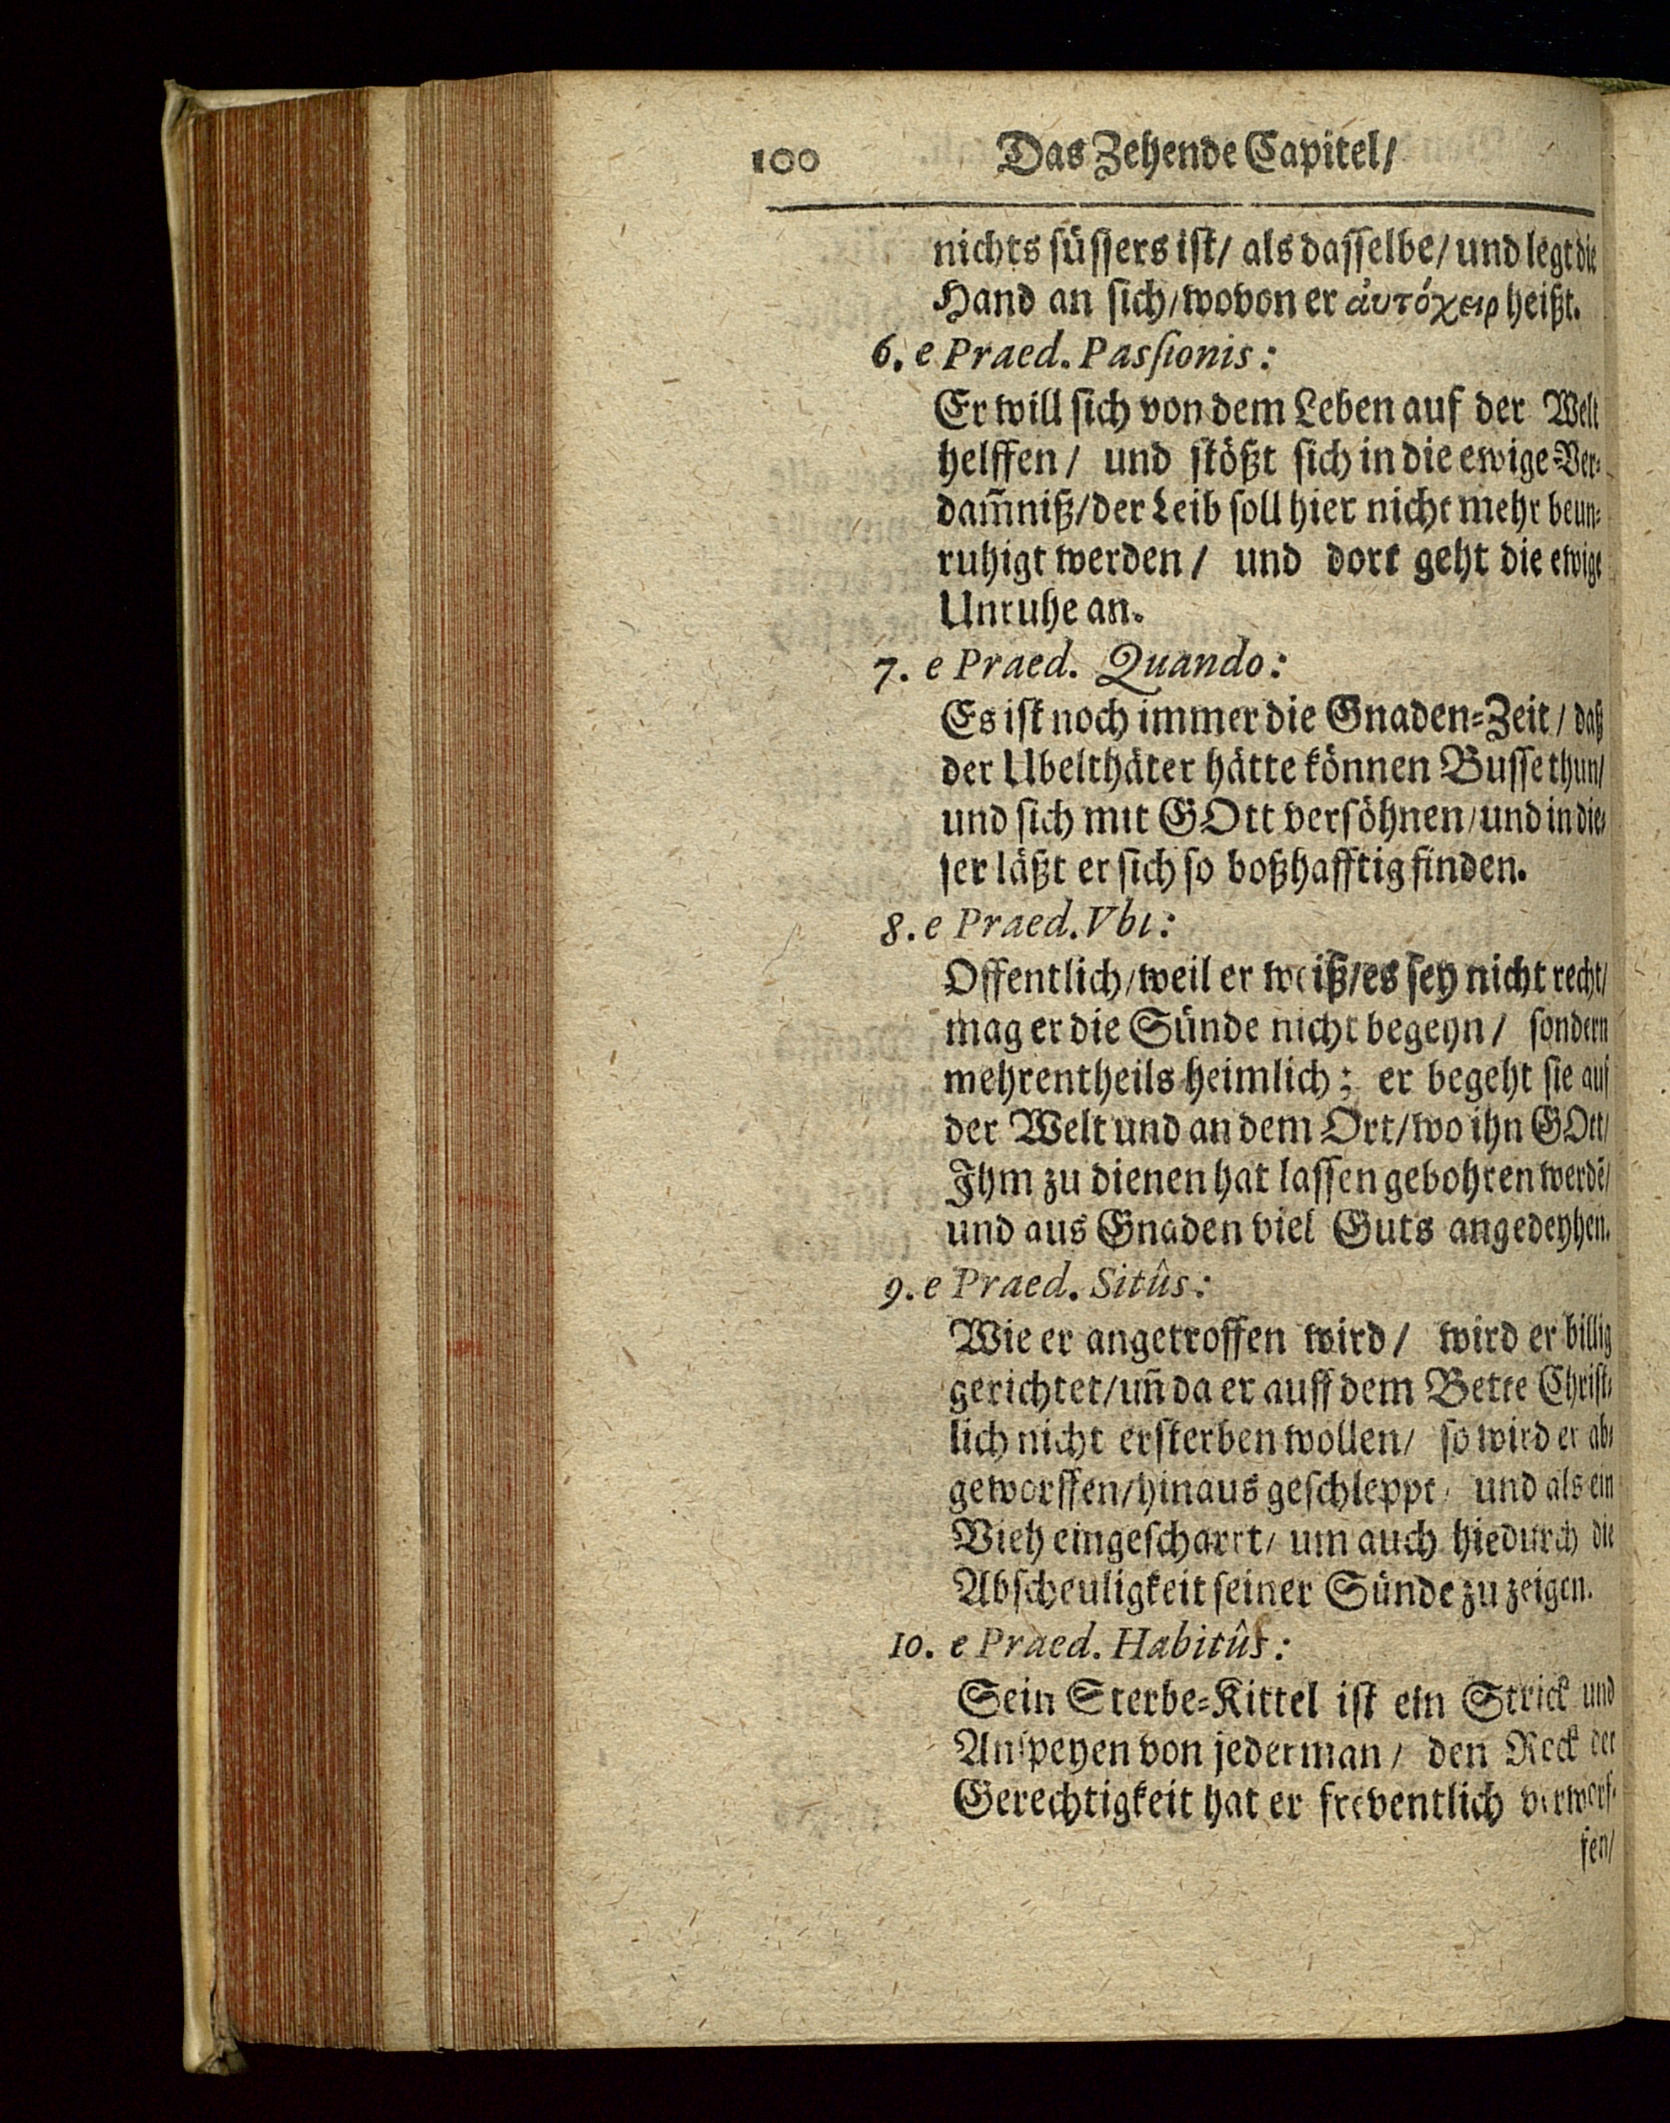 100 Das Zehende Capitel/
nichts süssers ist/ als dasselbe/ und legt die
Hand an sich/ wovon er ἀυτόχειρ heißt.
6. e Praed. Passionis:
Er will sich von dem Leben auf der Welt
helffen/ und stößt sich in die ewige Ver-
dam̄niß/ der Leib soll hier nicht mehr beun-
ruhigt werden/ und dort geht die ewige
Unruhe an.
7. e Praed. Quando:
Es ist noch immer die Gnaden-Zeit/ daß
der Ubelthäter hätte können Busse thun/
und sich mit GOtt versöhnen/ und in die-
ser läßt er sich so boßhafftig finden.
8. e Praed. Vbi:
Offentlich/ weil er weiß/ es sey nicht recht/
mag er die Sünde nicht begehn/ sondern
mehrentheils heimlich; er begeht sie auf
der Welt und an dem Ort/ wo ihn GOtt/
Ihm zu dienen hat lassen gebohren werdē/
und aus Gnaden viel Guts angedeyhen.
9. e Praed. Sitûs:
Wie er angetroffen wird/ wird er billig
gerichtet/ uñ da er auff dem Bette Christ-
lich nicht ersterben wollen/ so wird er ab-
geworffen/ hinaus geschleppt/ und als ein
Vieh eingescharrt/ um auch hiedurch die
Abscheuligkeit seiner Sünde zu zeigen.
10. e Praed. Habitûs:
Sein Sterbe-Kittel ist ein Strick und
Anspeyen von jederman/ den Rock der
Gerechtigkeit hat er freventlich verworf-
fen/